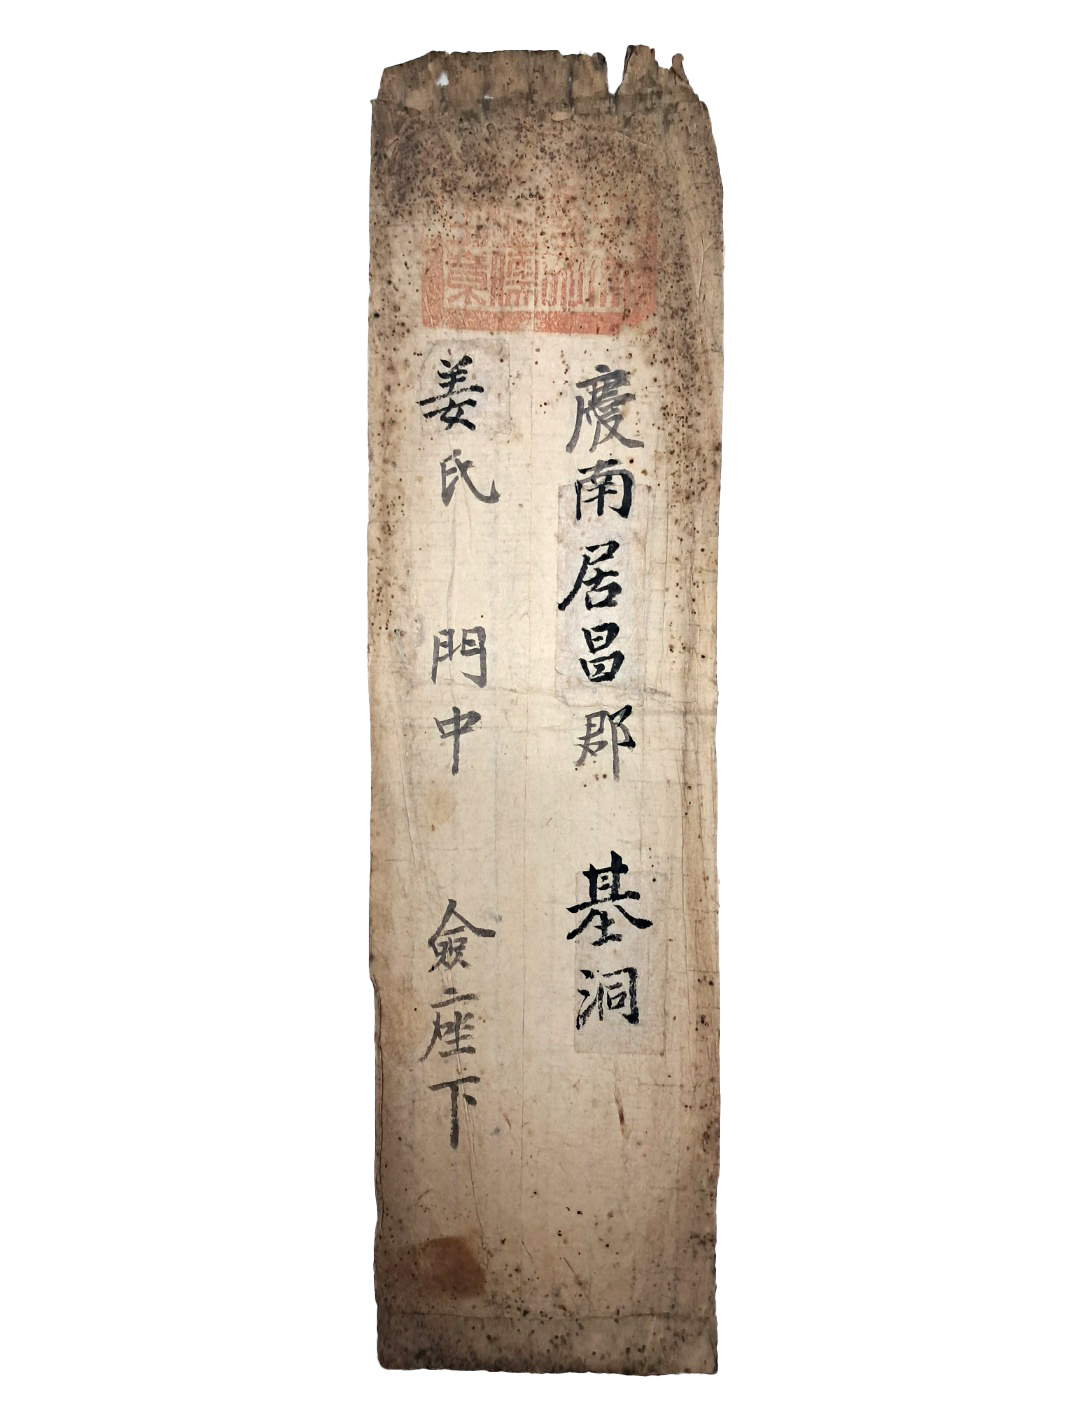 慶南居昌郡 基洞
姜氏 門中 僉座下